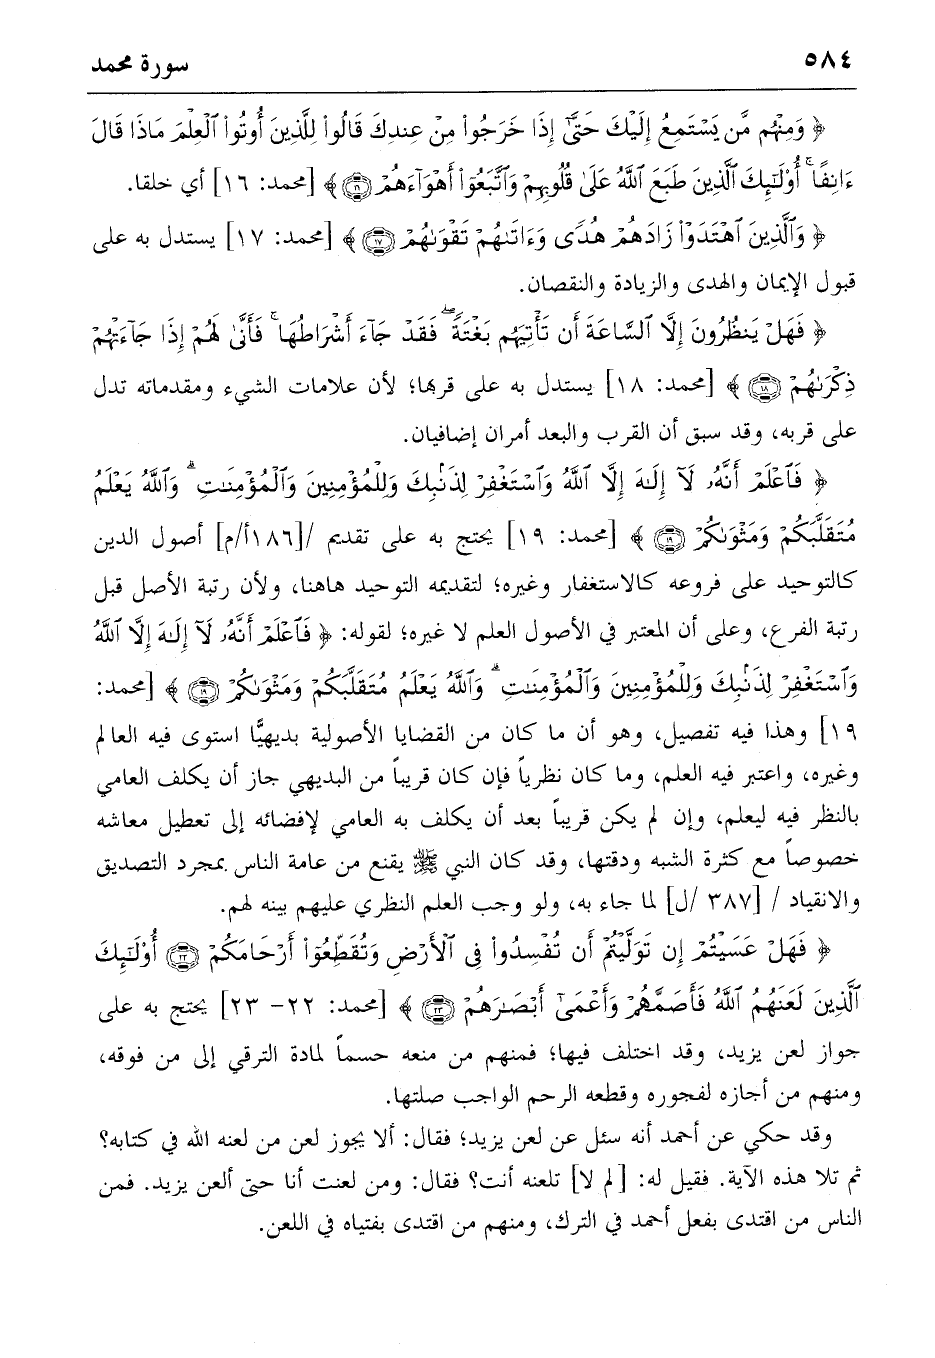 ٥٨٤ سورة محمد
﴿ وَمِنْهُم مَّن يَسْتَمِعُ إِلَيْكَ حَتَّىٰٓ إِذَا خَرَجُوا۟ مِنْ عِندِكَ قَالُوا۟ لِلَّذِينَ أُوتُوا۟ ٱلْعِلْمَ مَاذَا قَالَ
ءَانِفًا ۚ أُو۟لَـٰٓئِكَ ٱلَّذِينَ طَبَعَ ٱللَّهُ عَلَىٰ قُلُوبِهِمْ وَٱتَّبَعُوٓا۟ أَهْوَآءَهُمْ ١٦ ﴾ [محمد: ١٦] أي خلقا.
﴿ وَٱلَّذِينَ ٱهْتَدَوْا۟ زَادَهُمْ هُدًى وَءَاتَىٰهُمْ تَقْوَىٰهُمْ ١٧ ﴾ [محمد: ١٧] يستدل به على
قبول الإيمان والهدى والزيادة والنقصان.
﴿ فَهَلْ يَنظُرُونَ إِلَّا ٱلسَّاعَةَ أَن تَأْتِيَهُم بَغْتَةً ۖ فَقَدْ جَآءَ أَشْرَاطُهَا ۚ فَأَنَّىٰ لَهُمْ إِذَا جَآءَتْهُمْ
ذِكْرَىٰهُمْ ١٨ ﴾ [محمد: ١٨] يستدل به على قربها؛ لأن علامات الشيء ومقدماته تدل
على قربه، وقد سبق أن القرب والبعد أمران إضافيان.
﴿ فَٱعْلَمْ أَنَّهُۥ لَآ إِلَـٰهَ إِلَّا ٱللَّهُ وَٱسْتَغْفِرْ لِذَنۢبِكَ وَلِلْمُؤْمِنِينَ وَٱلْمُؤْمِنَـٰتِ ۗ وَٱللَّهُ يَعْلَمُ
مُتَقَلَّبَكُمْ وَمَثْوَىٰكُمْ ١٩ ﴾ [محمد: ١٩] يحتج به على تقديم /[١٨٦أ/م] أصول الدين
كالتوحيد على فروعه كالاستغفار وغيره؛ لتقديمه التوحيد هاهنا، ولأن رتبة الأصل قبل
رتبة الفرع، وعلى أن المعتبر في الأصول العلم لا غيره؛ لقوله: ﴿ فَٱعْلَمْ أَنَّهُۥ لَآ إِلَـٰهَ إِلَّا ٱللَّهُ
وَٱسْتَغْفِرْ لِذَنۢبِكَ وَلِلْمُؤْمِنِينَ وَٱلْمُؤْمِنَـٰتِ ۗ وَٱللَّهُ يَعْلَمُ مُتَقَلَّبَكُمْ وَمَثْوَىٰكُمْ ١٩ ﴾ [محمد:
١٩] وهذا فيه تفصيل، وهو أن ما كان من القضايا الأصولية بديهيًّا استوى فيه العالم
وغيره، واعتبر فيه العلم، وما كان نظرياً فإن كان قريباً من البديهي جاز أن يكلف العامي
بالنظر فيه ليعلم، وإن لم يكن قريباً بعد أن يكلف به العامي لإفضائه إلى تعطيل معاشه
خصوصاً مع كثرة الشبه ودقتها، وقد كان النبي ﷺ يقنع من عامة الناس بمجرد التصديق
والانقياد / [٣٨٧ /ل] لما جاء به، ولو وجب العلم النظري عليهم بينه لهم.
﴿ فَهَلْ عَسَيْتُمْ إِن تَوَلَّيْتُمْ أَن تُفْسِدُوا۟ فِى ٱلْأَرْضِ وَتُقَطِّعُوٓا۟ أَرْحَامَكُمْ ٢٢ أُو۟لَـٰٓئِكَ
ٱلَّذِينَ لَعَنَهُمُ ٱللَّهُ فَأَصَمَّهُمْ وَأَعْمَىٰٓ أَبْصَـٰرَهُمْ ٢٣ ﴾ [محمد: ٢٢- ٢٣] يحتج به على
جواز لعن يزيد، وقد اختلف فيها؛ فمنهم من منعه حسماً لمادة الترقي إلى من فوقه،
ومنهم من أجازه لفجوره وقطعه الرحم الواجب صلتها.
وقد حكي عن أحمد أنه سئل عن لعن يزيد؛ فقال: ألا يجوز لعن من لعنه الله في كتابه؟
ثم تلا هذه الآية. فقيل له: [لم لا] تلعنه أنت؟ فقال: ومن لعنت أنا حتى ألعن يزيد. فمن
الناس من اقتدى بفعل أحمد في الترك، ومنهم من اقتدى بفتياه في اللعن.